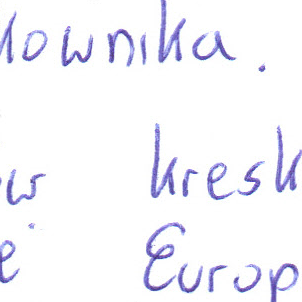 łownika.
ów kresk
e Europ